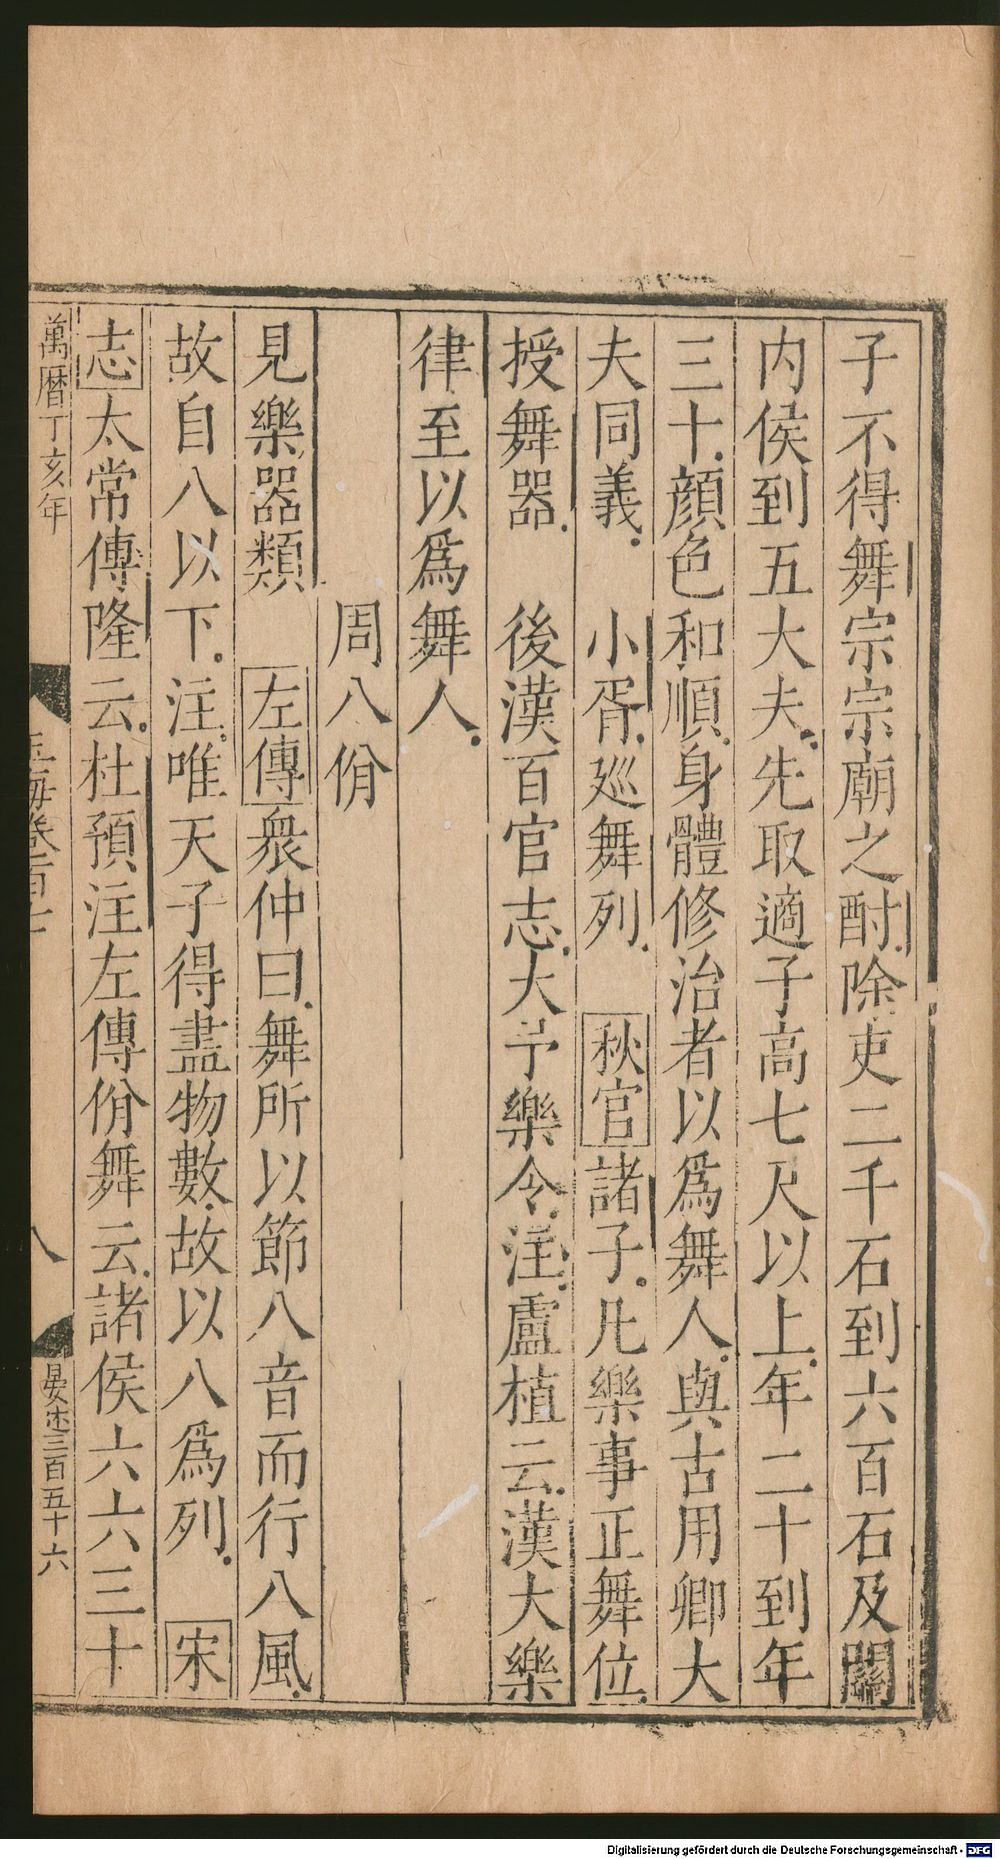 子不得舞宗宗廟之酎除吏二千石到六百石及關
内侯到五大夫先取適子高七尺以上年二十到年
三十顔色和順身體修治者以爲舞人與古用卿大
夫同義　小胥巡舞列　秋官諸子凡樂事正舞位
授舞器　後漢百官志大予樂令注盧植云漢大樂
律至以爲舞人
周八佾
見樂器類　左傳衆仲曰舞所以節八音而行八風
故自八以下注唯天子得盡物數故以八爲列　宋
志太常傳隆云杜預注左傳佾舞云諸侯六六三十
萬曆丁亥年
玉海卷一百七
八
晏述三百五十六
Digitalisierung gefördert durch die Deutsche Forschungsgemeinschaft - DFG